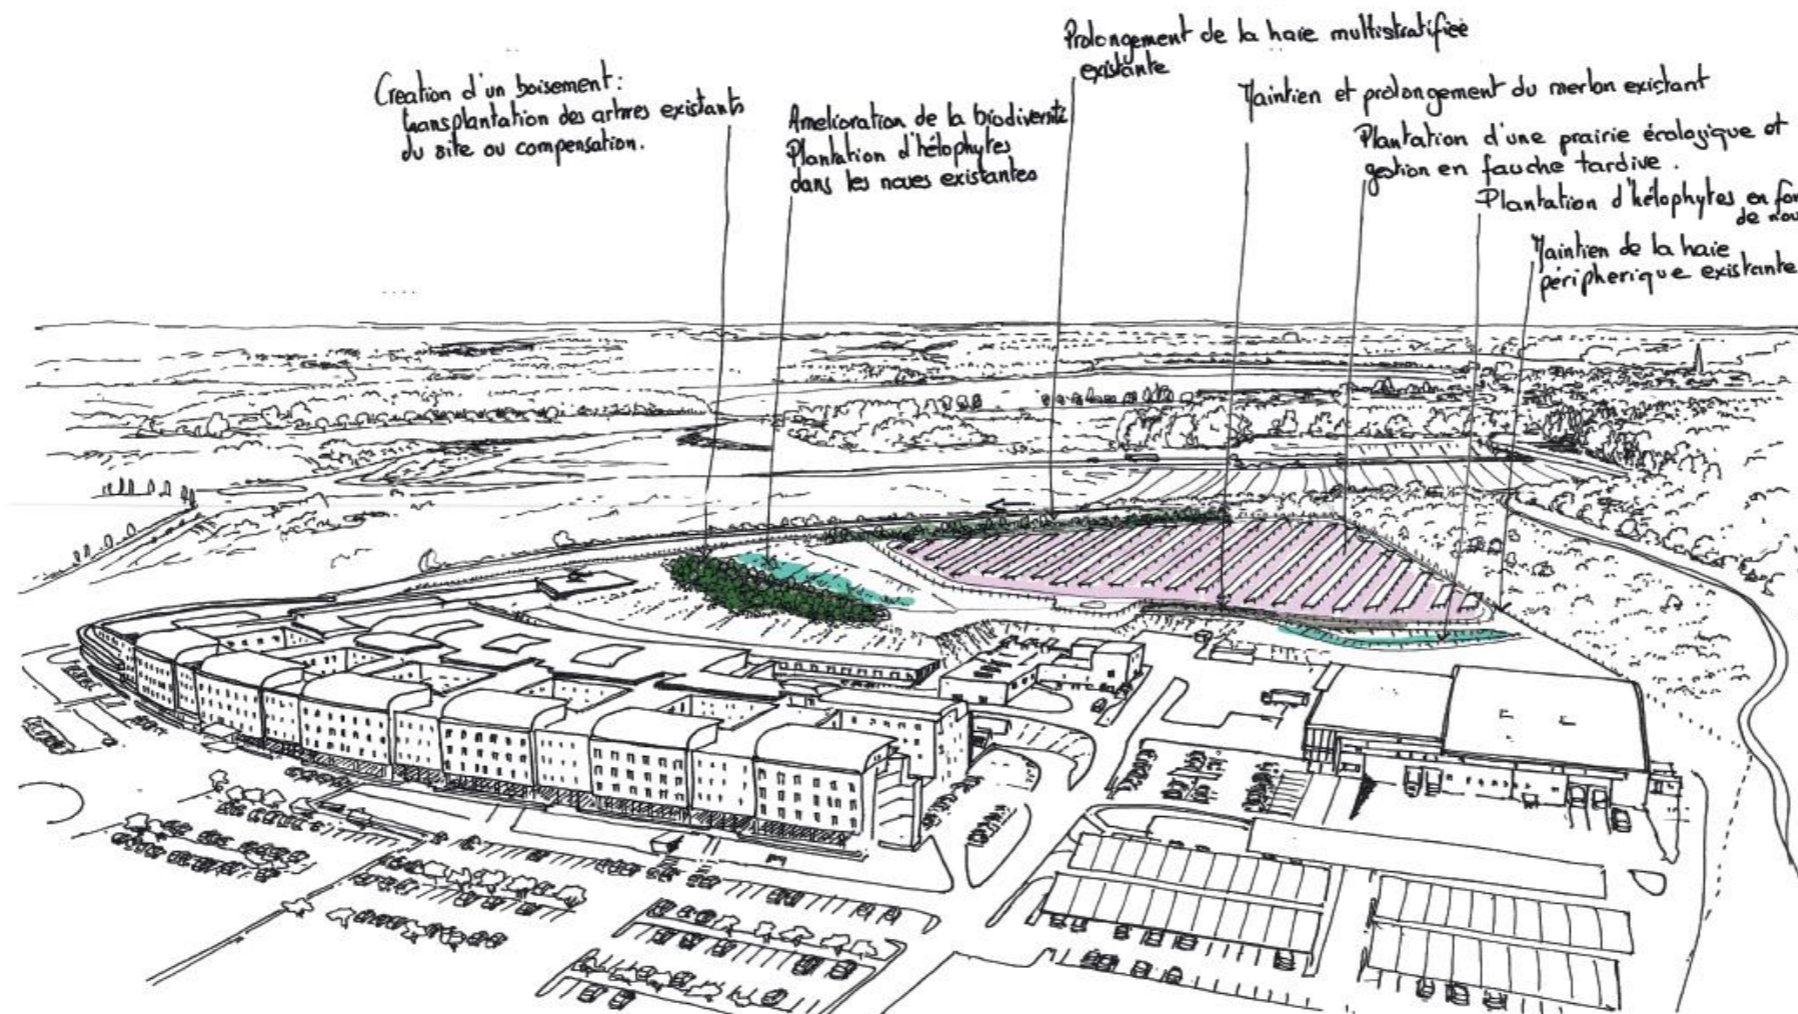 Creation d'un boisement:
transplantation des arbres existants
du site ou compensation.
Amelioration de la biodiversité
Plantation d'hélophytes
dans les noues existantes
Prolongement de la haie multistratifiée
existante
Maintien et prolongement du merlon existant
Plantation d'une prairie écologique et
gestion en fauche tardive.
Plantation d'hélophytes en
de
Maintien de la haie
péripherique existante